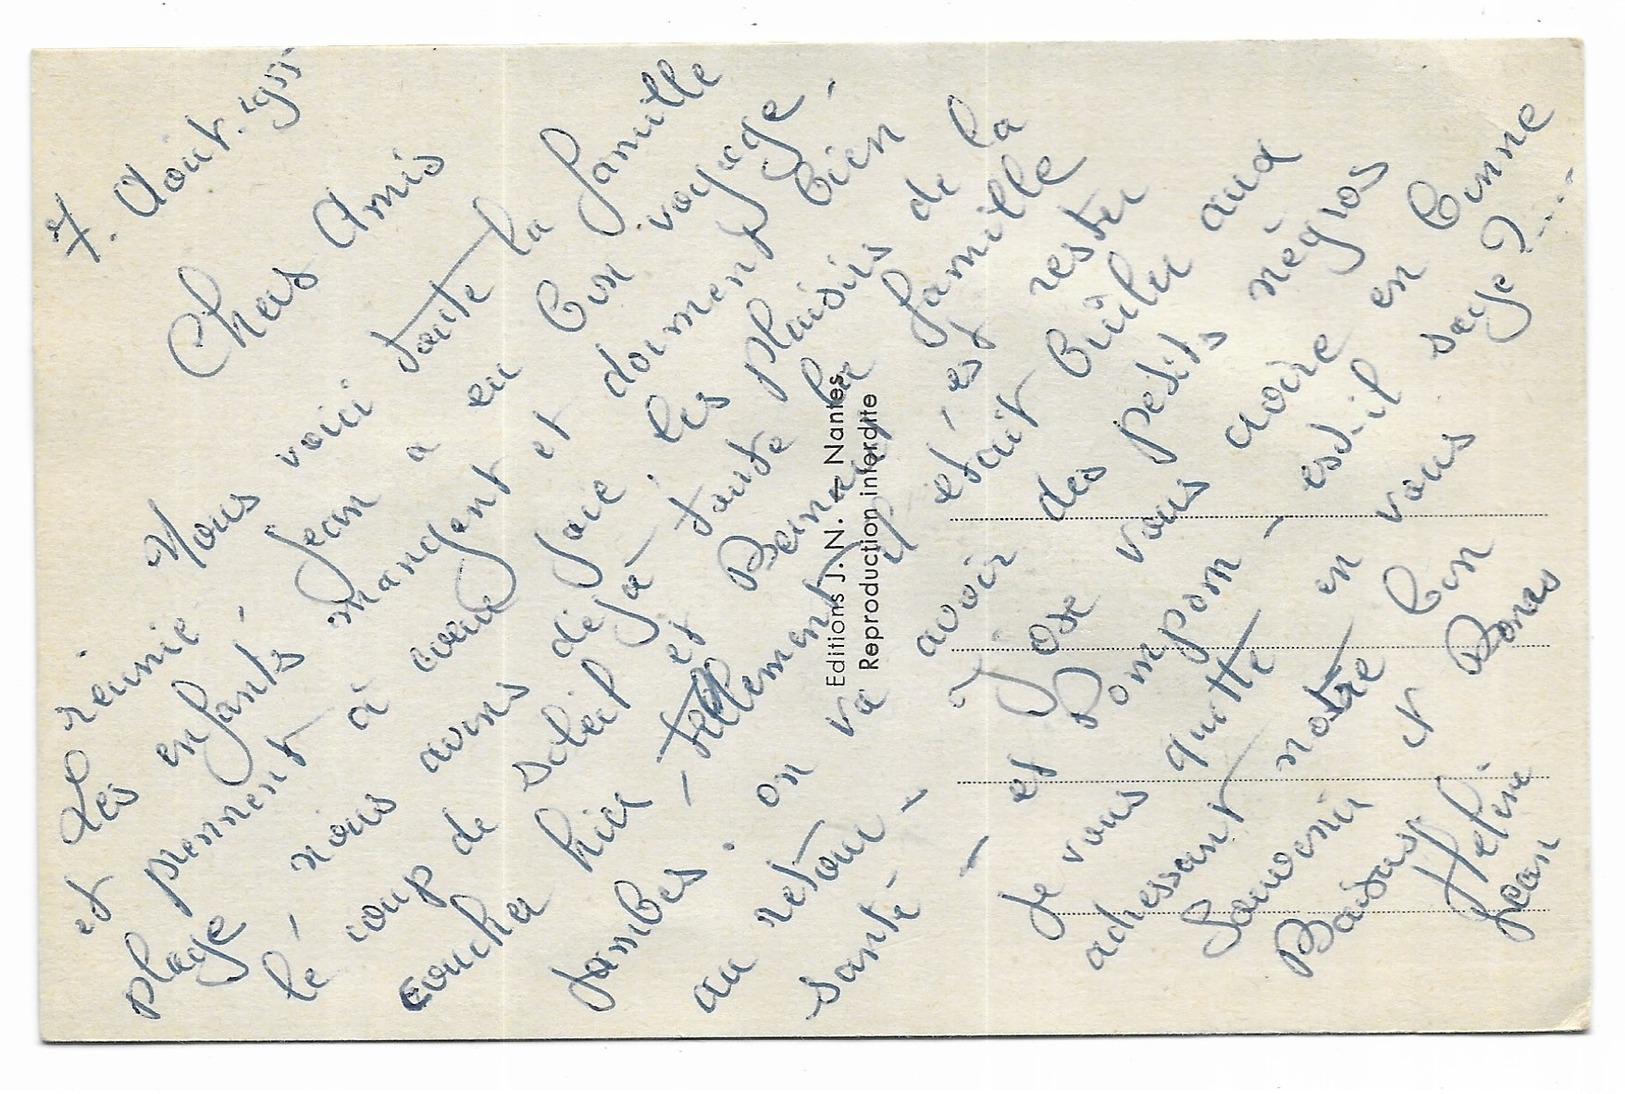 7. Août. 1951
Chers Amis
Nous voici toute la famille
réunie, Jean a eu bon voyage,
Les enfants mangent et dorment bien
et prennent à coeur joie les plaisirs de la
plage, nous avons déjà toute la famille
le coup de soleil et Bernard est resté
coucher hier - tellement il était brûler aux
jambes. on va avoir des petits négros
au retour - J'ose vous croire en bonne
santé - et Pompon - est-il sage ?...
- Je vous quitte en vous
adressant notre bon
Souvenir et Bons
Baisers
Hélène
Jean
Editions J. N. — Nantes
Reproduction interdite